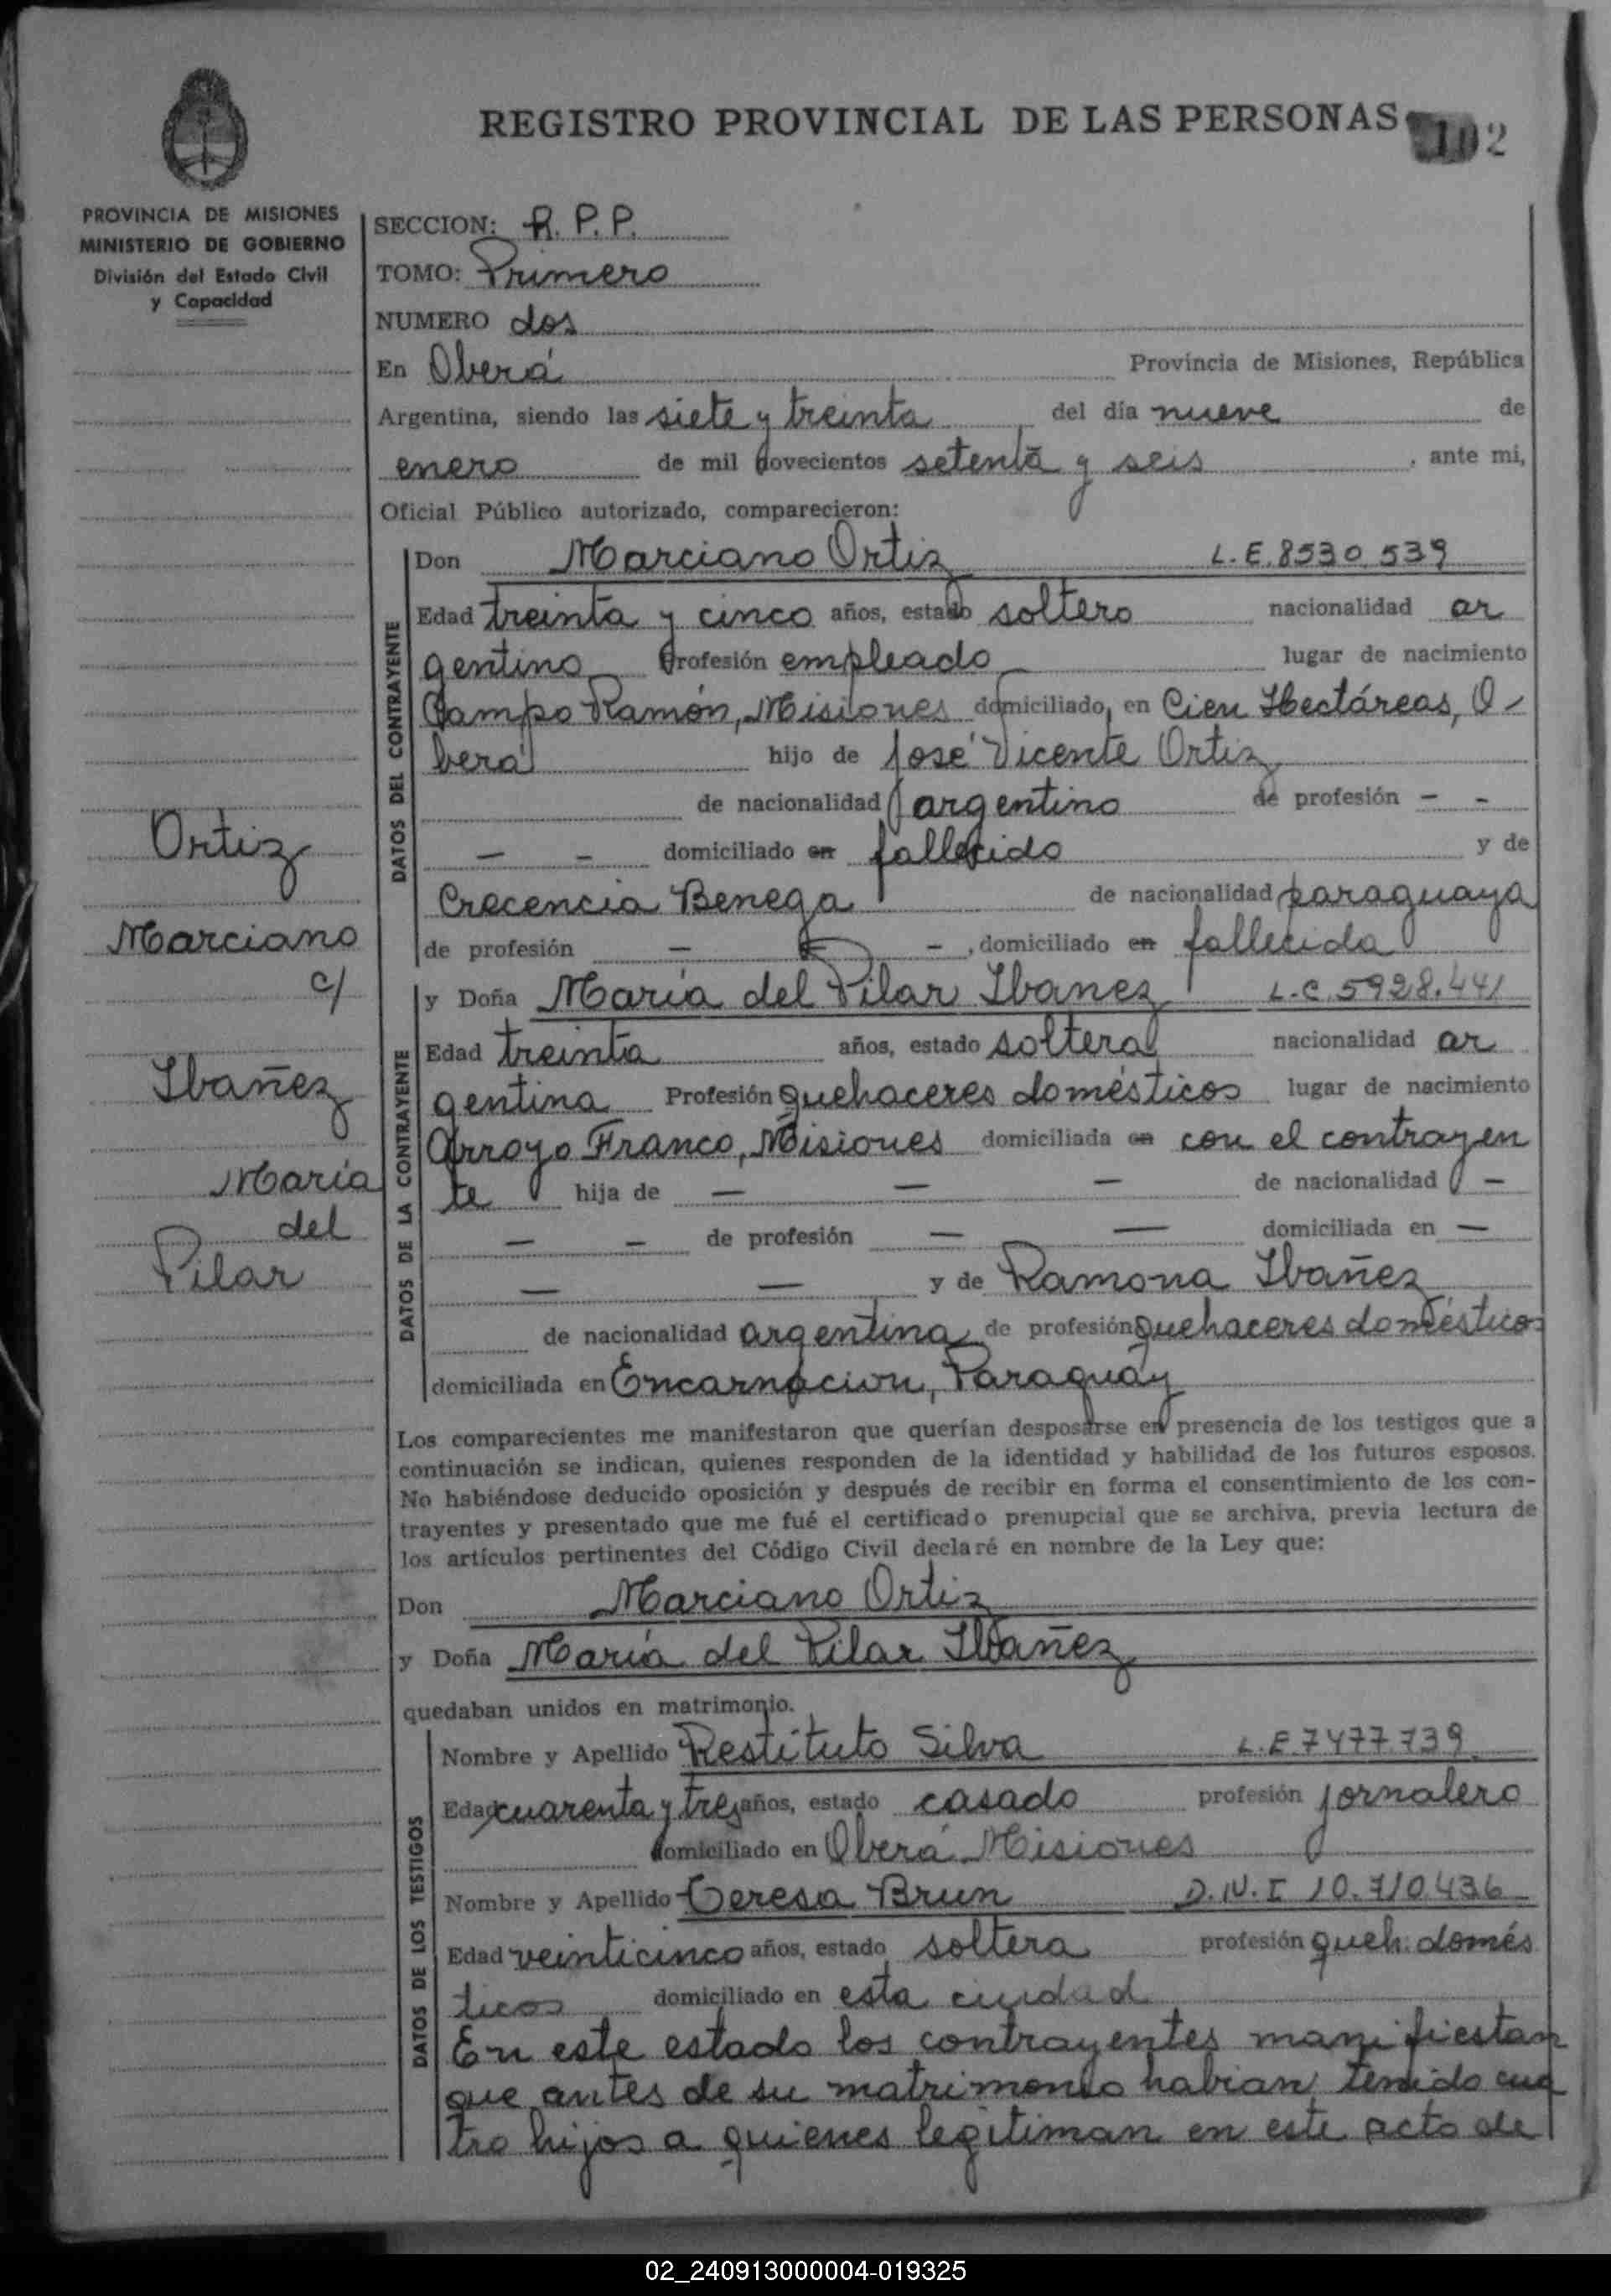 REGISTRO PROVINCIAL DE LAS PERSONAS 102
PROVINCIA DE MISIONES
MINISTERIO DE GOBIERNO
División del Estado Civil
y Capacidad
SECCION: R. P. P.
TOMO: Primero
NUMERO dos
En Oberá Provincia de Misiones, República
Argentina, siendo las siete y treinta del día nueve de
enero de mil novecientos setenta y seis, ante mi,
Oficial Público autorizado, comparecieron:
DATOS DEL CONTRAYENTE
Don Marciano Ortiz L.E. 8530.539
Edad treinta y cinco años, estado soltero nacionalidad ar
gentino Profesión empleado lugar de nacimiento
Campo Ramón, Misiones domiciliado en Cien Hectáreas, O-
berá hijo de José Vicente Ortiz
de nacionalidad argentino de profesión - -
- - domiciliado en fallecido y de
Crecencia Benega de nacionalidad paraguaya
de profesión - -, domiciliado en fallecida
DATOS DE LA CONTRAYENTE
y Doña María del Pilar Ibanez L.C. 5928.441
Edad treinta años, estado soltera nacionalidad ar
gentina Profesión quehaceres domésticos lugar de nacimiento
Arroyo Franco, Misiones domiciliada en con el contrayen
te hija de - - - de nacionalidad -
- - de profesión - - domiciliada en -
- - y de Ramona Ibañez
de nacionalidad argentina de profesión quehaceres domésticos
domiciliada en Encarnacion, Paraguay
Ortiz
Marciano
c/
Ibañez
María
del
Pilar
Los comparecientes me manifestaron que querían desposarse en presencia de los testigos que a
continuación se indican, quienes responden de la identidad y habilidad de los futuros esposos.
No habiéndose deducido oposición y después de recibir en forma el consentimiento de los con-
trayentes y presentado que me fué el certificado prenupcial que se archiva, previa lectura de
los artículos pertinentes del Código Civil declaré en nombre de la Ley que:
Don Marciano Ortiz
y Doña María del Pilar Ibañez
quedaban unidos en matrimonio.
DATOS DE LOS TESTIGOS
Nombre y Apellido Restituto Silva L.E. 7477.739
Edad cuarenta y tres años, estado casado profesión jornalero
domiciliado en Oberá Misiones
Nombre y Apellido Teresa Brun D.N.I 10.710.436
Edad veinticinco años, estado soltera profesión queh. domés
ticos domiciliado en esta ciudad
En este estado los contrayentes manifiestan
que antes de su matrimonio habian tenido cua
tro hijos a quienes legitiman en este acto de
02_240913000004-019325